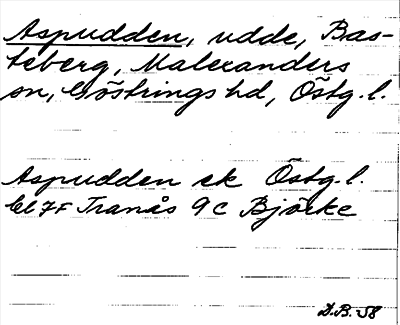 Aspudden, udde, Bas-
teberg, Malexanders
sn, Göstrings hd, Östg. l.
Aspudden ek Östg. l.
Bl 7F Tranås 9C Björke
D.B. 58